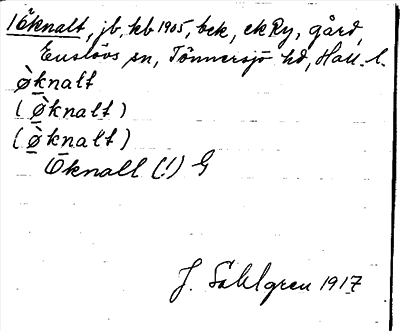 1 Öknalt, jb, kb 1905, bek, ekRy, gård,
Enslövs sn, Tönnersjö hd, Hall. l.
ø̀knalt
(ø̀knalt)
(ø̀knalt)
Öknall (!) G
J. Sahlgren 1917